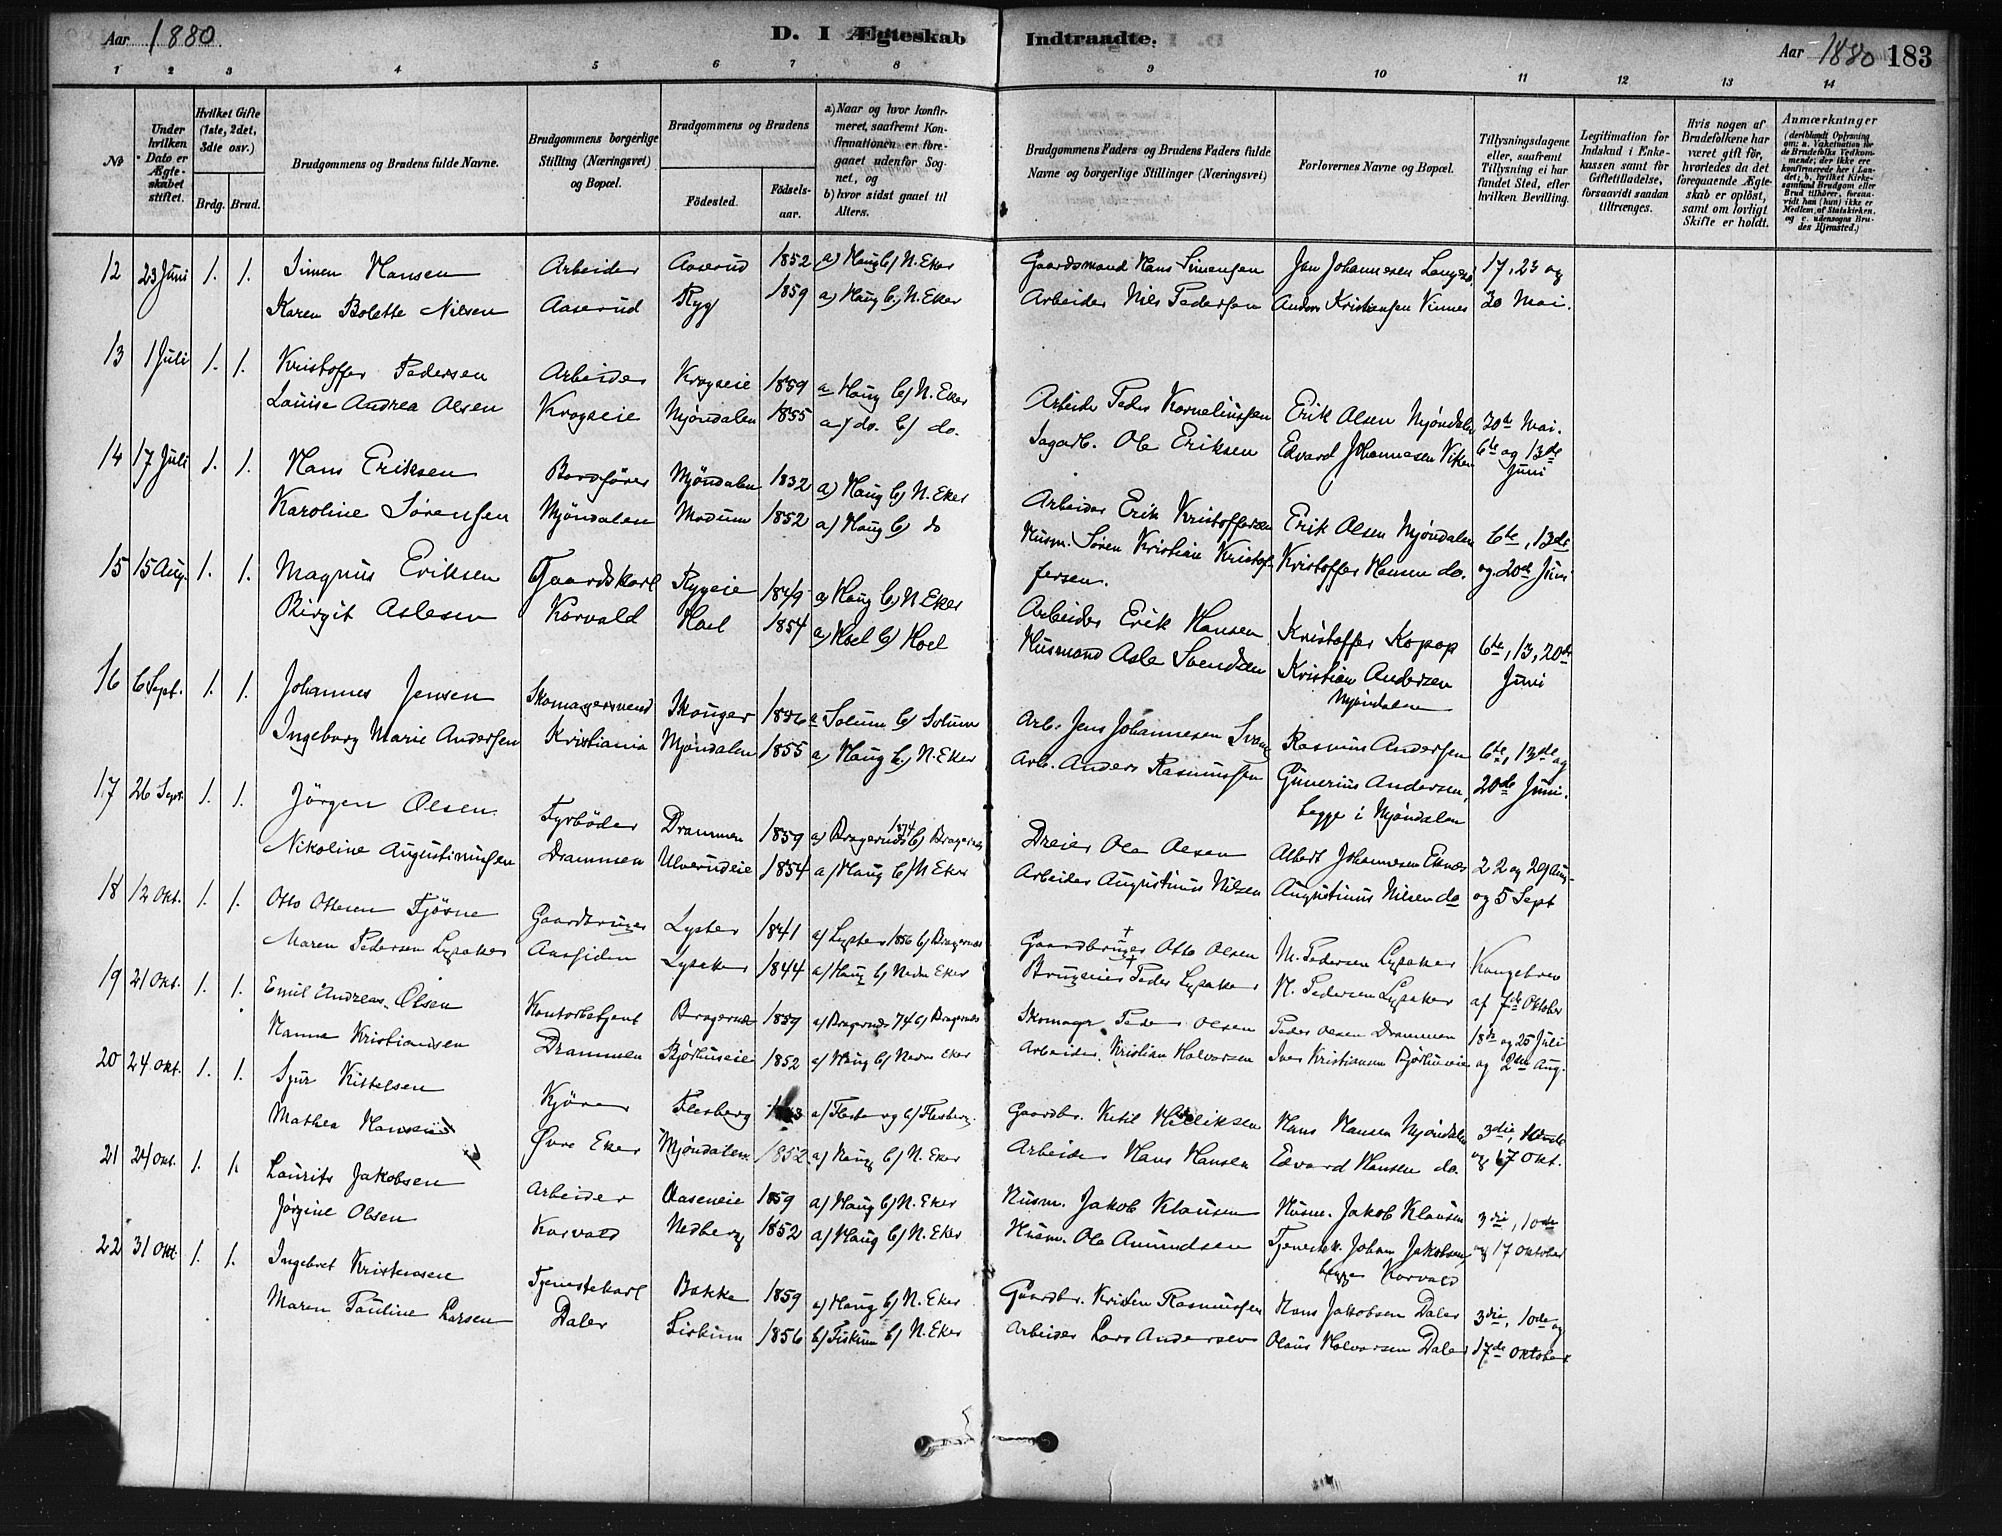 Aar 1880. D. I Ægteskab Indtraadte. Aar 1880 183
1 2 3 4 5 6 7 8 9 10 11 12 13 14
No
Under hvilken Dato er Ægteskabet stiftet.
Hvilket Gifte (1ste, 2det, 3die osv.)
Brdg. Brud.
Brudgommens og Brudens fulde Navne.
Brudgommens borgerlige Stilling (Næringsvei) og Bopæl.
Brudgommens og Brudens
Fødested. Fødselsaar.
a) Naar og hvor konfirmeret, saafremt Konfirmationen er foregaaet udenfor Sognet, og
b) hvor sidst gaaet til Alters.
Brudgommens Faders og Brudens Faders fulde Navne og borgerlige Stillinger (Næringsvei)
Forlovernes Navne og Bopæl.
Tillysningsdagene eller, saafremt Tillysning ei har fundet Sted, efter hvilken Bevilling.
Legitimation for Indskud i Enkekassen samt for Giftetilladelse, forsaavidt saadan tiltrænges.
Hvis nogen af Brudefolkene har været gift før, hvorledes da det foregaaende Ægteskab er opløst, samt om lovligt Skifte er holdt.
Anmærkninger (deriblandt Oplysning om: a. Vakcination for de Brudefolks Vedkommende, der ikke ere konfirmerede her i Landet; b. hvilket Kirkesamfund Brudgom eller Brud tilhører, forsaavidt han (hun) ikke er Medlem af Statskirken, og c. udensogns Brudes Hjemsted.)
12 23 Juni 1. 1. Simen Hansen Arbeider Aaserud 1852 a) Haug b) N. Eker Gaardsmand Hans Simensen Jan Johannesen 17, 23 og
Karen Bolette Nilsen Aaserud Ryg 1859 a) Haug b) N. Eker Arbeider Nils Pedersen Anders Kristiansen Vinnes 30 Mai.
13 1 Juli 1. 1. Kristoffer Pedersen Arbeider Krogseie 1859 a Haug b) N. Eker Arbeider Peder Korneliussen Erik Olsen Mjøndalen 30te Mai.
Louise Andrea Olsen Krogseie Mjøndalen 1855 a) do. b) do. Sagarb. Ole Eriksen Edvard Johannesen Viken 6te og 13de Juni
14 17 Juli 1. 1. Hans Eriksen Bordfører Mjøndalen 1832 a) Haug b) N. Eker Arbeider Erik Kristoffersen Erik Olsen Mjøndalen 6te, 13de
Karoline Sørensen Mjøndalen Modum 1852 a) Haug b) do Husm. Søren Kristian Kristoffersen. Kristoffer Hansen do. og 20de Juni
15 15 Aug. 1. 1. Magnus Eriksen Gaardskarl Rygeie 1849 a) Haug b) N Eker Arbeider Erik Hansen Kristoffer Kopop 6te, 13, 20de
Birgit Aslesen Korvald Hoel 1854 a) Hoel b) Hoel Husmand Asle Svendsen Kristian Andersen Mjøndalen Juni
16 6 Sept. 1. 1. Johannes Jensen Skomagersvend Skouger 1856 a Solum b) Solum Arb. Jens Johannesen Rasmus Andersen 6te, 13de og
Ingeborg Marie Andersen Kristiania Mjøndalen 1855 a) Haug b) N. Eker Arb. Anders Rasmussen Gunerius Andersen, begge i Mjøndalen 20de Juni.
17 26 Sept. 1. 1. Jørgen Olsen Fyrbøder Drammen 1859 a) Bragernæs 1874 b) Bragernæs Dreier Ole Olsen Albert Johannesen Eknæs 22 og 29 Aug.
Nikoline Augustinusen Drammen Ulverudeie 1854 a) Haug b) N Eker Arbeider Augustinus Nilsen Augustinus Nilsen do og 5 Sept
18 12 Okt. 1. 1. Otto Ottesen Fjøsne Gaardbruger Lyster 1841 a) Lyster 1856 b) Bragernæs Gaardbruger † Otto Olsen M. Pedersen Lysaker Kongebrev
Maren Pedersen Lysaker Aassiden Lysaker 1844 a) Haug b) Nedre Eker Brugseier † Peder Lysaker N. Pedersen Lysaker af 7de Oktober
19 21 Okt. 1. 1. Emil Andreas Olsen Kontorbetjent Bragernæs 1859 a) Bragernæs 74 b) Bragernæs Skomager Peder Olsen Peder Olsen Drammen 18de og 25 Juli
Hanna Kristiansen Drammen Bjørhuseie 1852 a) Haug b) Nedre Eker Arbeider Kristian Halvorsen Iver Kristiansen Bjørhuseie og 2den Aug.
20 24 Okt. 1. 1. Sjur Kittelsen Kjører Flesberg a) Flesberg b) Flesberg. Gaardbr. Ketil Hans Hansen Mjøndalen 3die, 10nde
Mathea Hansen Øvre Eker Mjøndalen 1852 a) Haug b) N. Eker Arbeider Hans Hansen Edvard Hansen do. og 17 Okt.
21 24 Okt. 1. 1. Laurits Jakobsen Arbeider Aaseneie 1859 a) Haug b) N. Eker Husm. Jakob Klausen Husm. Jakob Klausen 3die, 10de
Jørgine Olsen Korvald Nedberg 1852 a) Haug b) N. Eker Husm. Ole Amundsen Tjenestek. Johan Jakobsen, begge Korvald og 17 Oktober
22 31 Okt. 1. 1. Ingebret Kristensen Tjenestekarl Bakke 1859 a) Haug b) N. Eker Gaardbr. Kristen Rasmussen Hans Jakobsen Daler 3die, 10de og
Maren Pauline Larsen Daler Fiskum 1856 b) Fiskum b) N. Eker Arbeider Lars Andersen Olaus Halvorsen Daler 17de Oktober